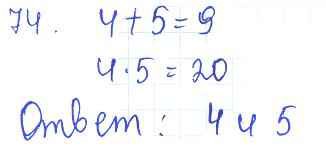 74. 4+5=9
4·5=20
Ответ: 4 и 5